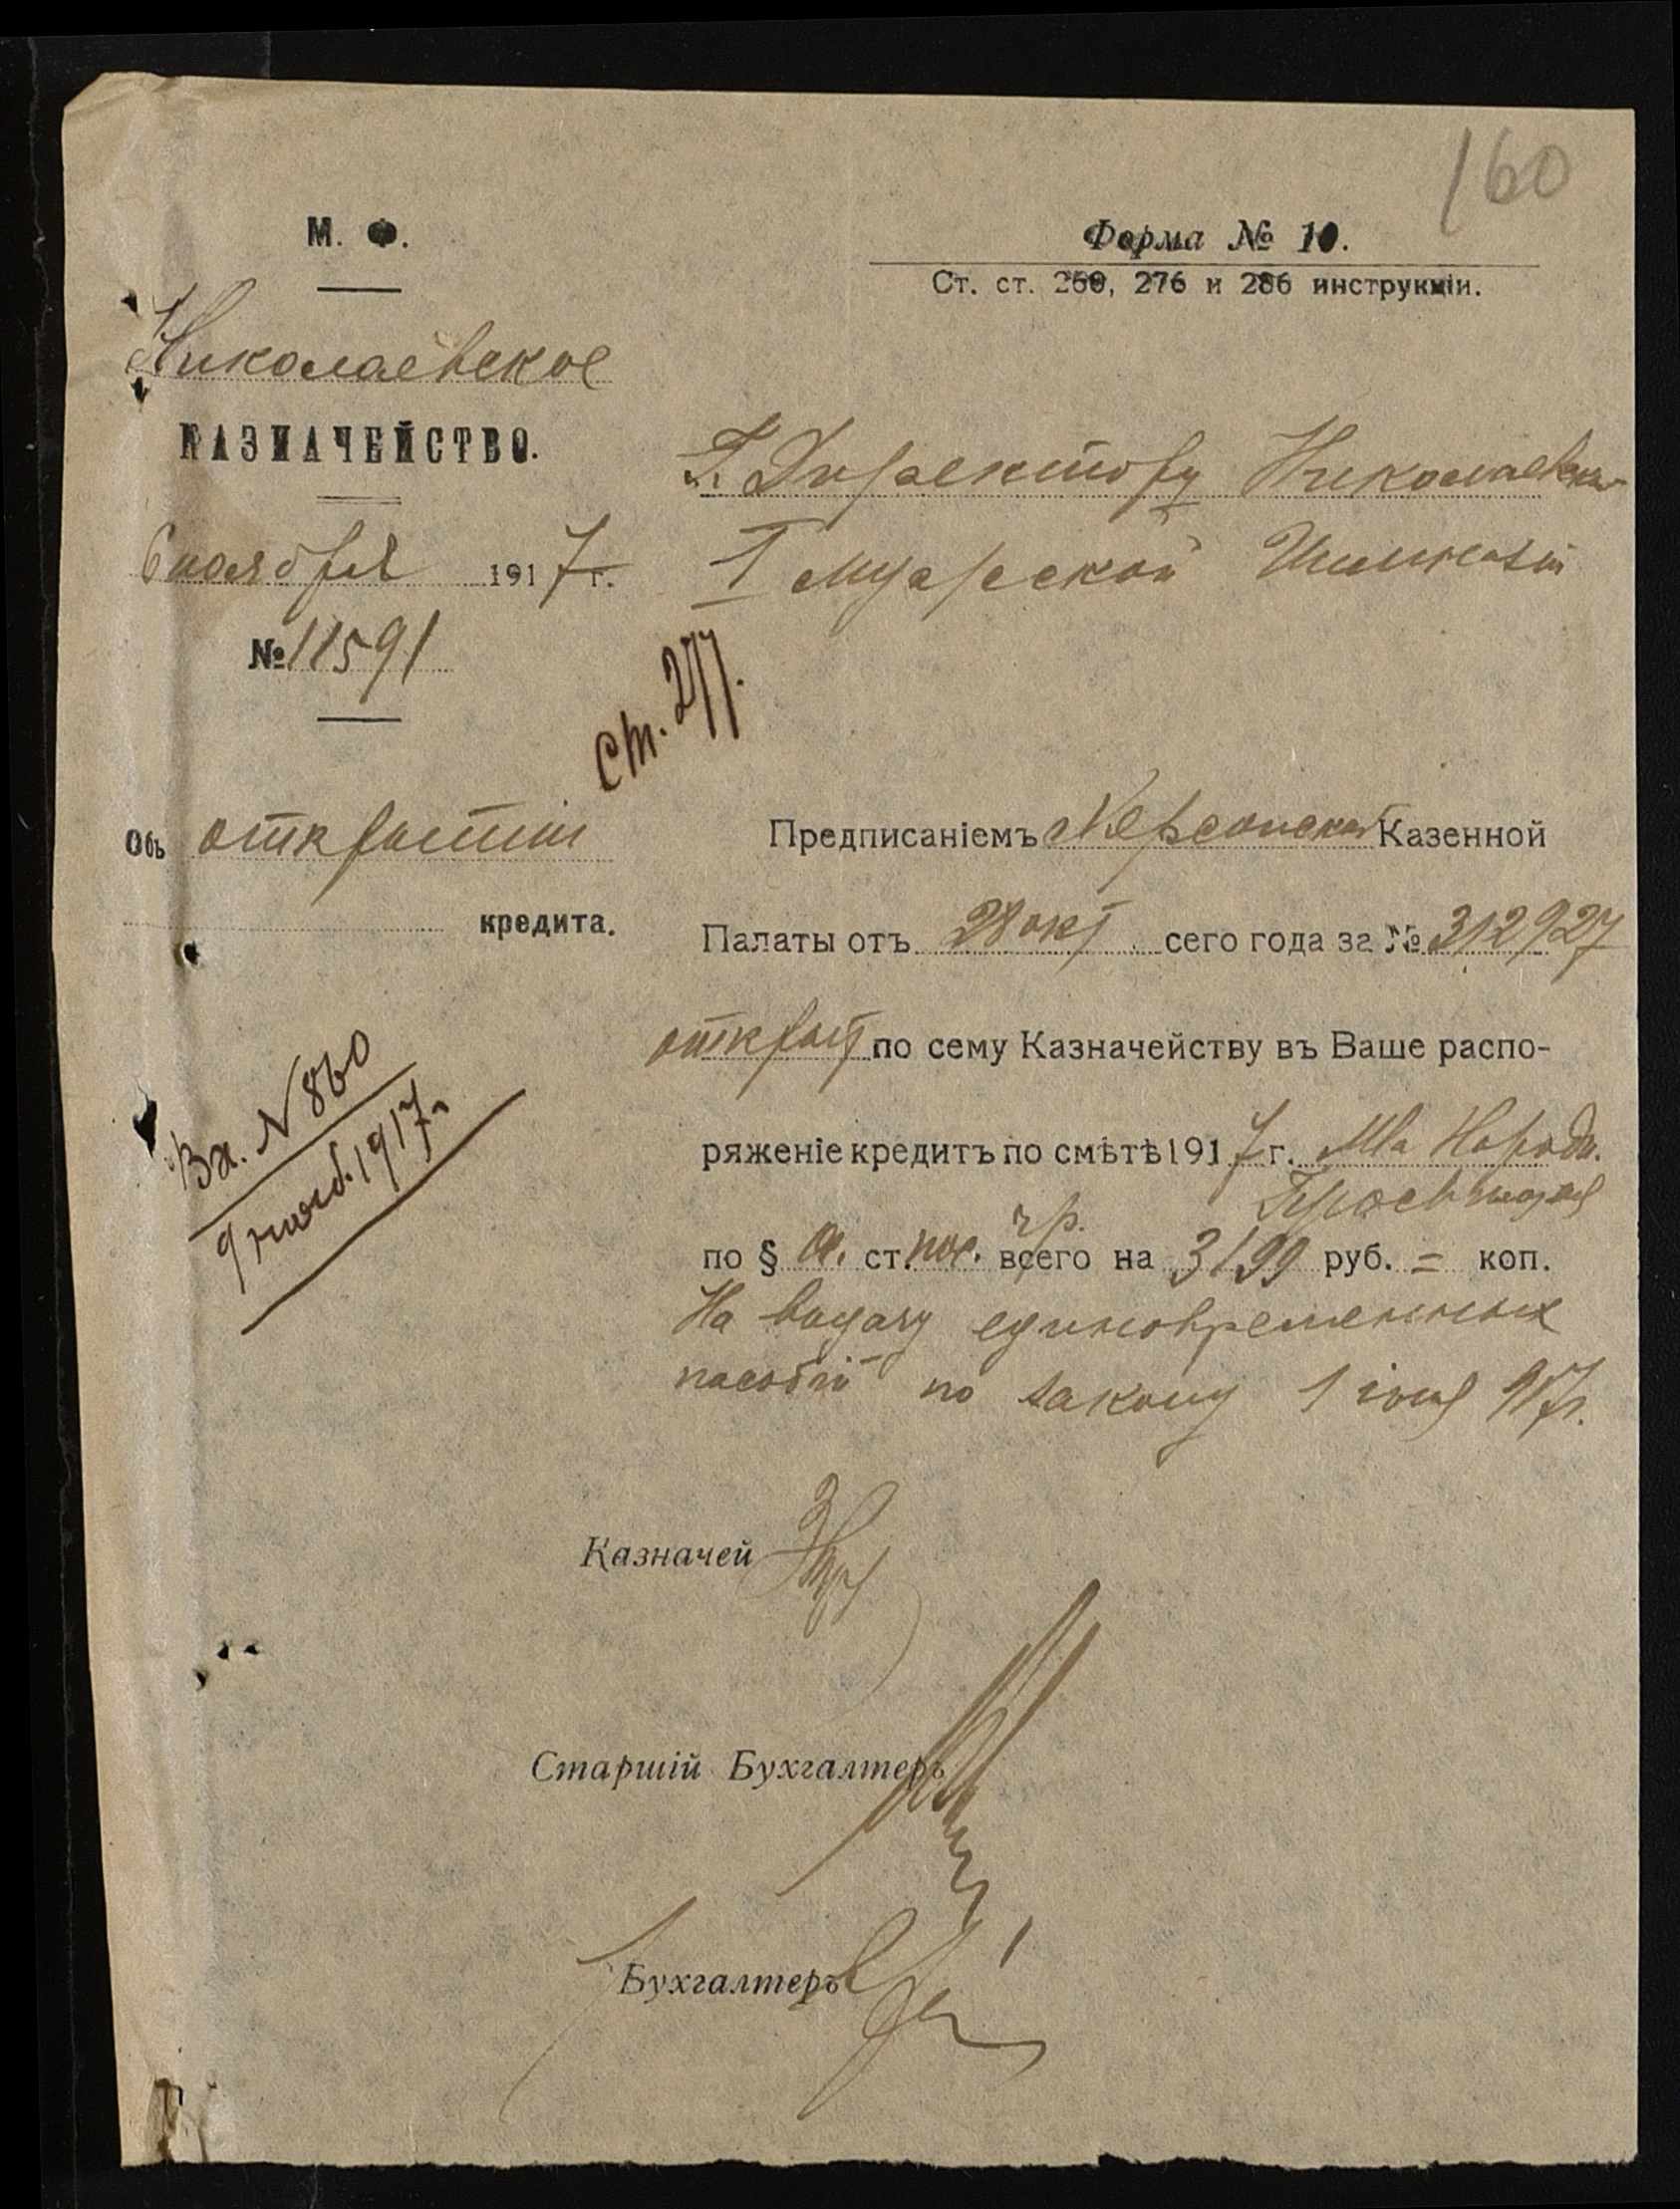 160
М. Ф.
Форма № 10.
Ст. ст. 260, 276 и 286 инструкціи.
Николаевское
КАЗНАЧЕЙСТВО.
6 ноября 1917 г.
№ 11591
Г. Директору Николаевской
I мужской Гимназіи
Ст. 277.
Объ открытіи
кредита.
Вх. № 860
9 нояб. 1917 г.
Предписаніемъ Херсонской Казенной
Палаты отъ 28 окт. сего года за № 312927
открытъ по сему Казначейству въ Ваше распо-
ряженіе кредитъ по смѣтѣ 1917 г. М-ва Народн.
Просвѣщенія
по § ст. пос. чр. всего на 3199 руб. = коп.
На выдачу единовременныхъ
пособій по закону 1 917 г.
Казначей
Старшій Бухгалтеръ
Бухгалтеръ